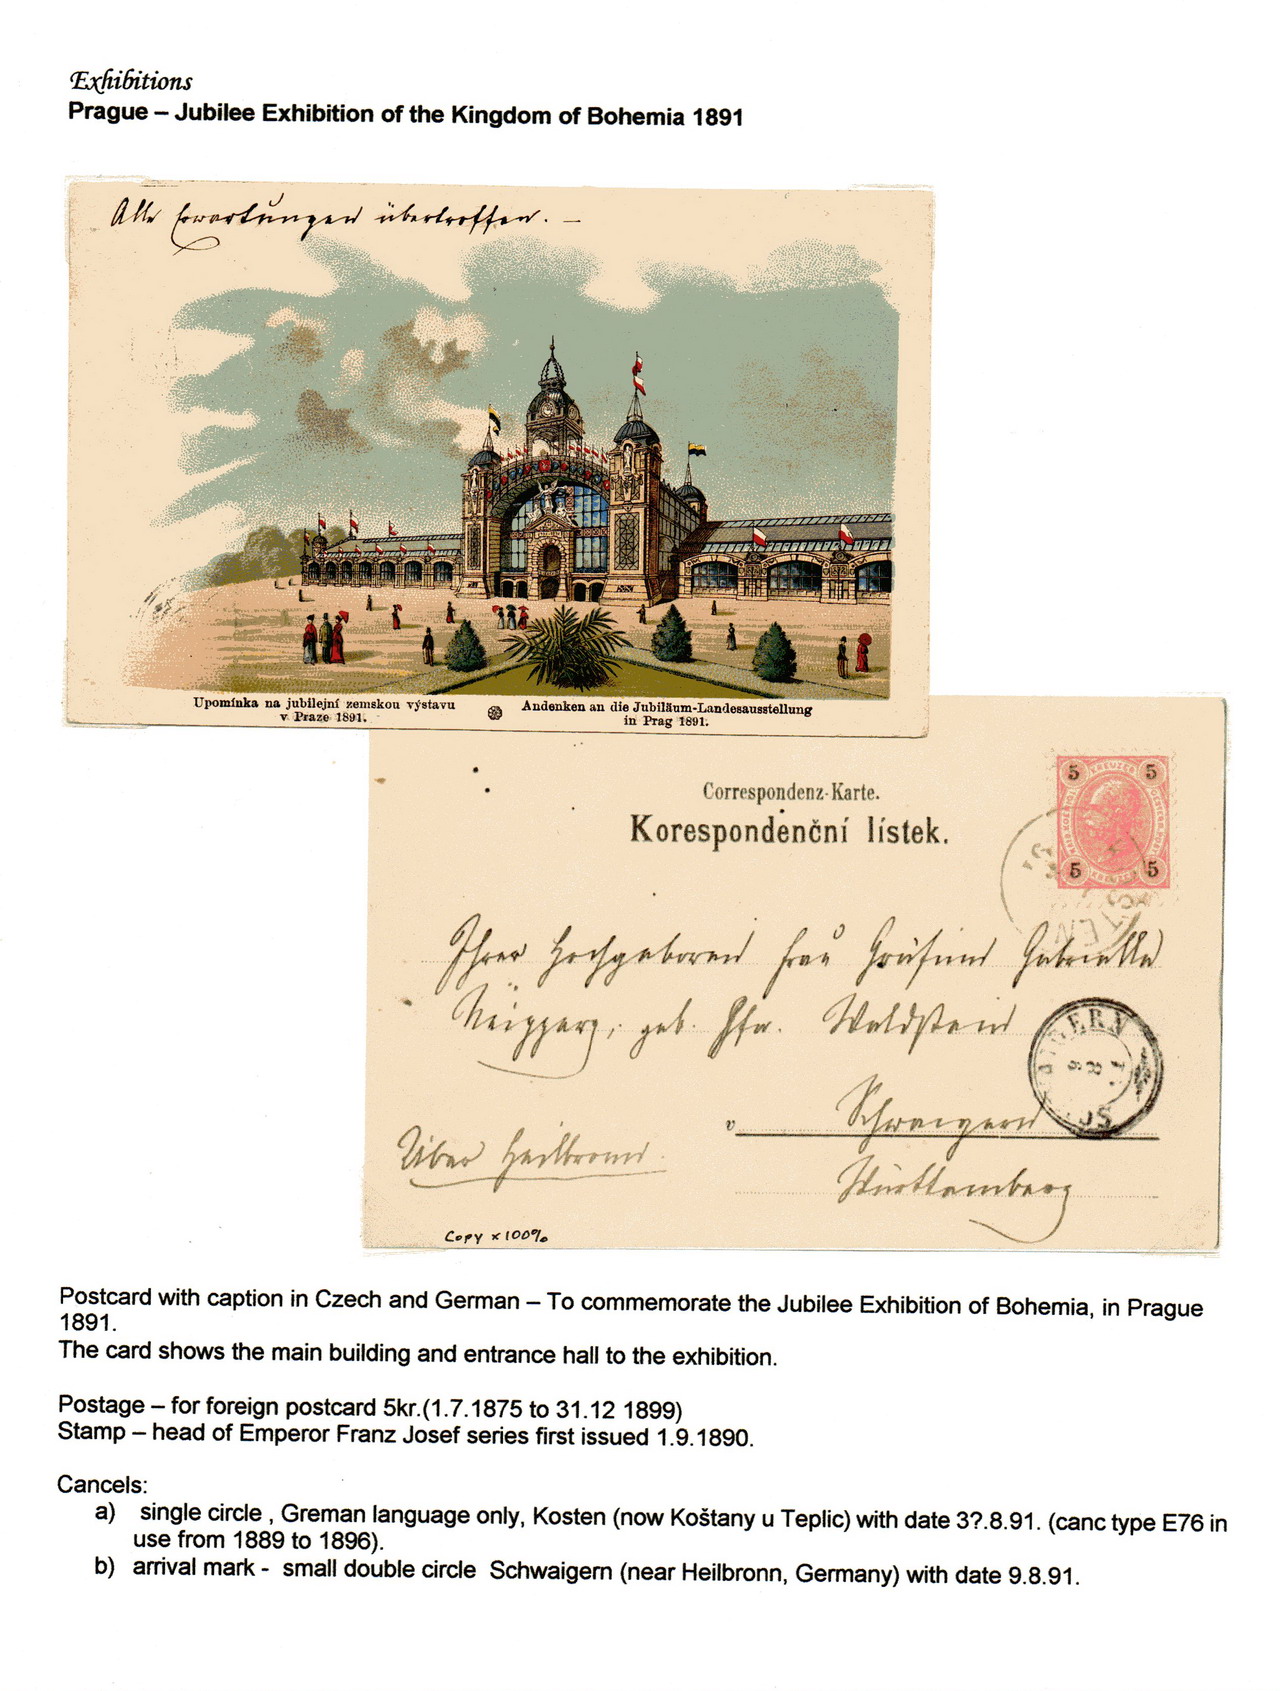 Exhibitions
Prague – Jubilee Exhibition of the Kingdom of Bohemia 1891
Alle Erwartungen übertroffen. –
Upomínka na jubilejní zemskou výstavu
v Praze 1891.
Andenken an die Jubiläum-Landesausstellung
in Prag 1891.
Correspondenz-Karte.
Korespondenční lístek.
5 KREUZER 5
5 KREUZER 5
Ihrer Hochgeboren Frau Gräfinn Gabrielle
Neipperg, geb. Gfn. Waldstein
v Schwaigern
Über Heilbronn.
Württemberg
Copy x 100%
Postcard with caption in Czech and German – To commemorate the Jubilee Exhibition of Bohemia, in Prague
1891.
The card shows the main building and entrance hall to the exhibition.
Postage – for foreign postcard 5kr.(1.7.1875 to 31.12 1899)
Stamp – head of Emperor Franz Josef series first issued 1.9.1890.
Cancels:
a) single circle , Greman language only, Kosten (now Koštany u Teplic) with date 3?.8.91. (canc type E76 in
use from 1889 to 1896).
b) arrival mark - small double circle Schwaigern (near Heilbronn, Germany) with date 9.8.91.